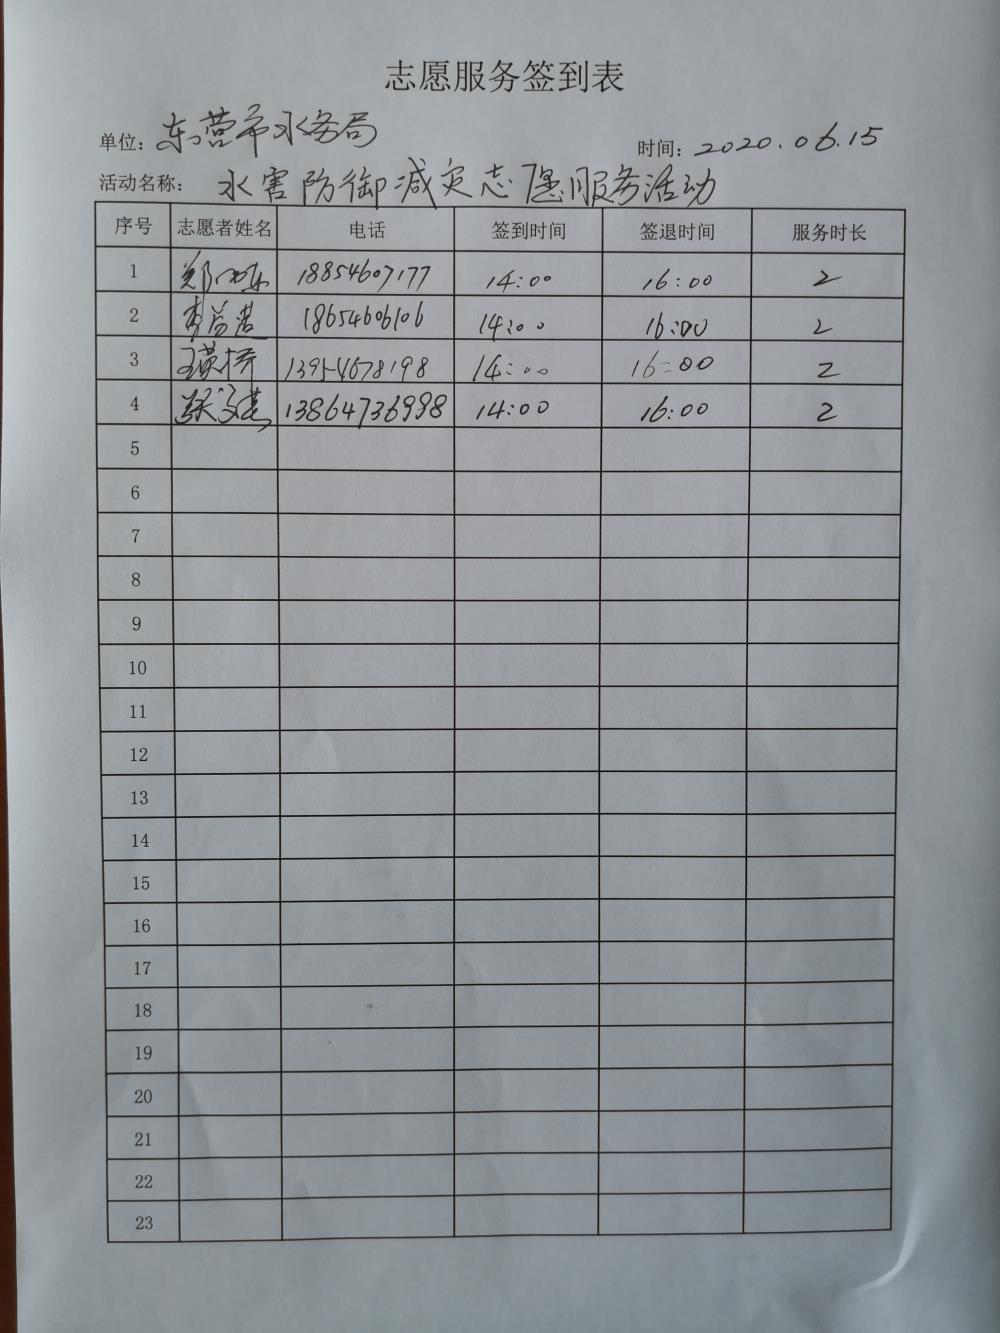 志愿服务签到表
单位：东营市水务局 时间：2020.06.15
活动名称： 水害防御减灾志愿服务活动
序号 志愿者姓名 电话 签到时间 签退时间 服务时长
1 郑 18854607177 14:00 16:00 2
2 李益 18654606106 14:00 16:00 2
3 王 13954678198 14:00 16:00 2
4 张文 13864736998 14:00 16:00 2
5
6
7
8
9
10
11
12
13
14
15
16
17
18
19
20
21
22
23